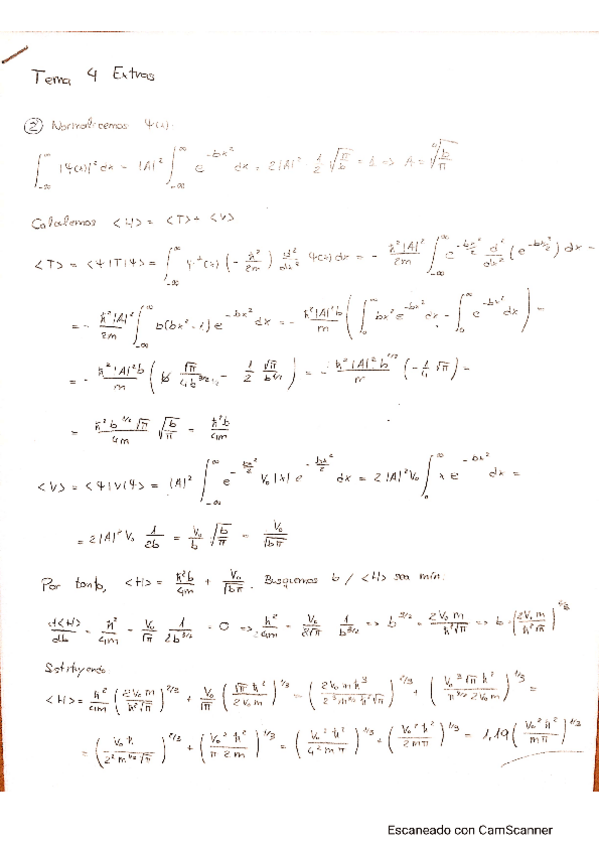 Tema 4 Extras
② Normalicemos Ψ(x).
∫_{-∞}^{∞} |Ψ(x)|² dx = |A|² ∫_{-∞}^{∞} e^{-bx²} dx = 2|A|² · 1/2 √(π/b) = 1 ⇒ A = ⁴√(b/π)
Calculemos <H> = <T> + <V>
<T> = <Ψ|T|Ψ> = ∫_{-∞}^{∞} Ψ*(x) (-ħ²/2m) d²/dx² Ψ(x) dx = - ħ²|A|²/2m ∫_{-∞}^{∞} e^{-bx²/2} d²/dx² (e^{-bx²/2}) dx =
= - ħ²|A|²/2m ∫_{-∞}^{∞} b(bx² - 1) e^{-bx²} dx = - ħ²|A|²b/m (∫_0^∞ bx² e^{-bx²} dx - ∫_0^∞ e^{-bx²} dx) =
= - ħ²|A|²b/m (b √π/4b^{3/2} - 1/2 √π/b^{1/2}) = - ħ²|A|²b^{1/2}/m (-1/4 √π) =
= ħ² b^{1/2} √π/4m √(b/π) = ħ²b/4m
<V> = <Ψ|V|Ψ> = |A|² ∫_{-∞}^{∞} e^{-bx²/2} V₀|x| e^{-bx²/2} dx = 2|A|²V₀ ∫_0^∞ x e^{-bx²} =
= 2|A|²V₀ 1/2b = V₀/b √(b/π) = V₀/√(bπ)
Por tanto, <H> = ħ²b/4m + V₀/√(bπ). Busquemos b / <H> sea mín.
d<H>/db = ħ²/4m - V₀/√π 1/2b^{3/2} = 0 ⇒ ħ²/4m = V₀/2√π 1/b^{3/2} ⇒ b^{3/2} = 2V₀m/ħ²√π ⇒ b = (2V₀m/ħ²√π)^{2/3}
Sustituyendo
<H> = ħ²/4m (2V₀m/ħ²√π)^{2/3} + V₀/√π (√π ħ²/2V₀m)^{1/3} = (2V₀mħ³/2³m^{3/2}ħ²√π)^{2/3} + (V₀³√π ħ²/π^{3/2} 2V₀m)^{1/3} =
= (V₀ħ/2²m^{1/2}√π)^{2/3} + (V₀²ħ²/π2m)^{1/3} = (V₀²ħ²/4²mπ)^{1/3} + (V₀²ħ²/2mπ)^{1/3} = 1,19 (V₀²ħ²/mπ)^{1/3}
Escaneado con CamScanner